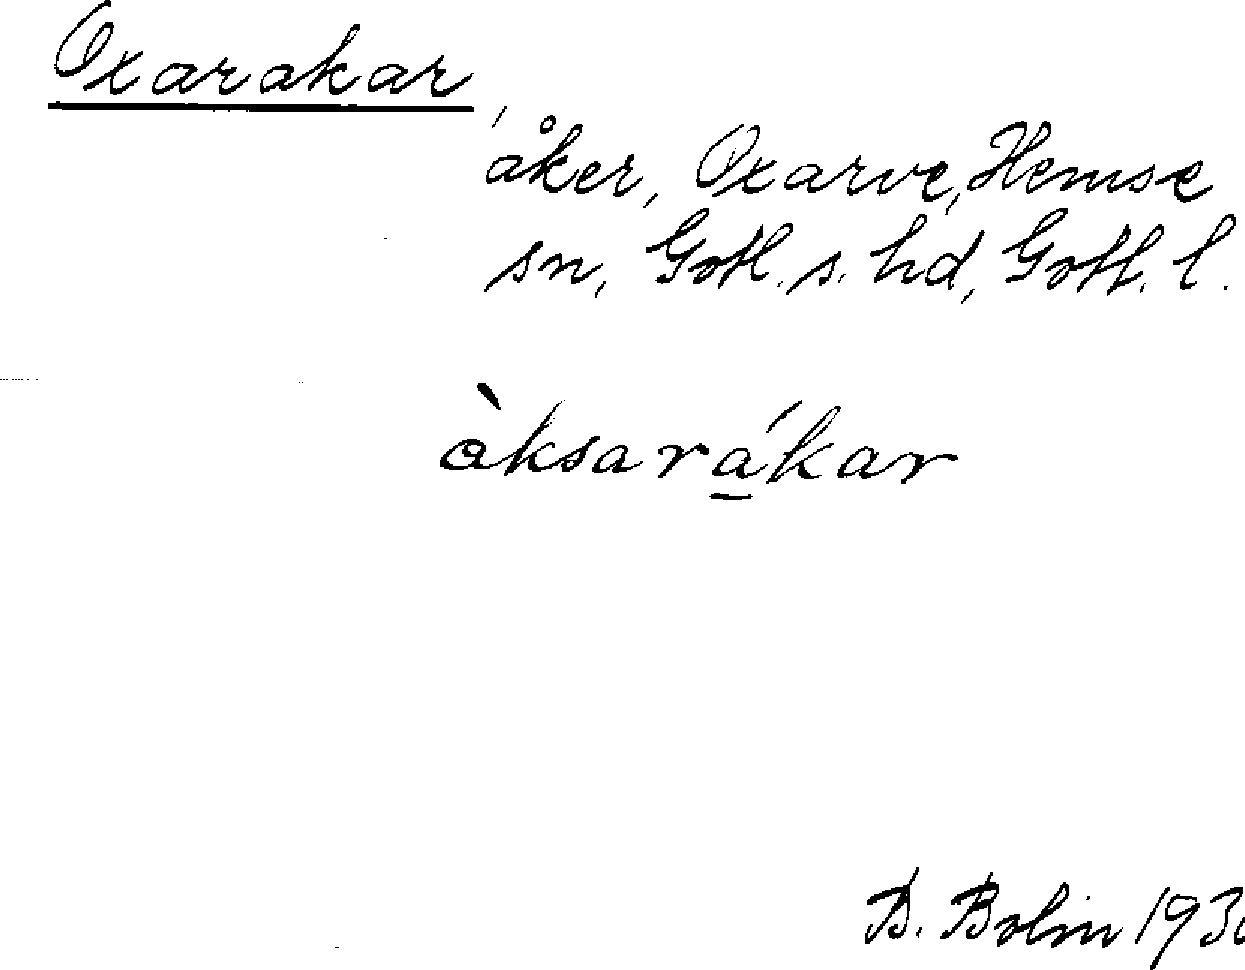 Oxarakar,
åker, Oxarve, Hemse
sn, Gotl. s. hd, Gotl. l.
àksarákar
B. Bolin